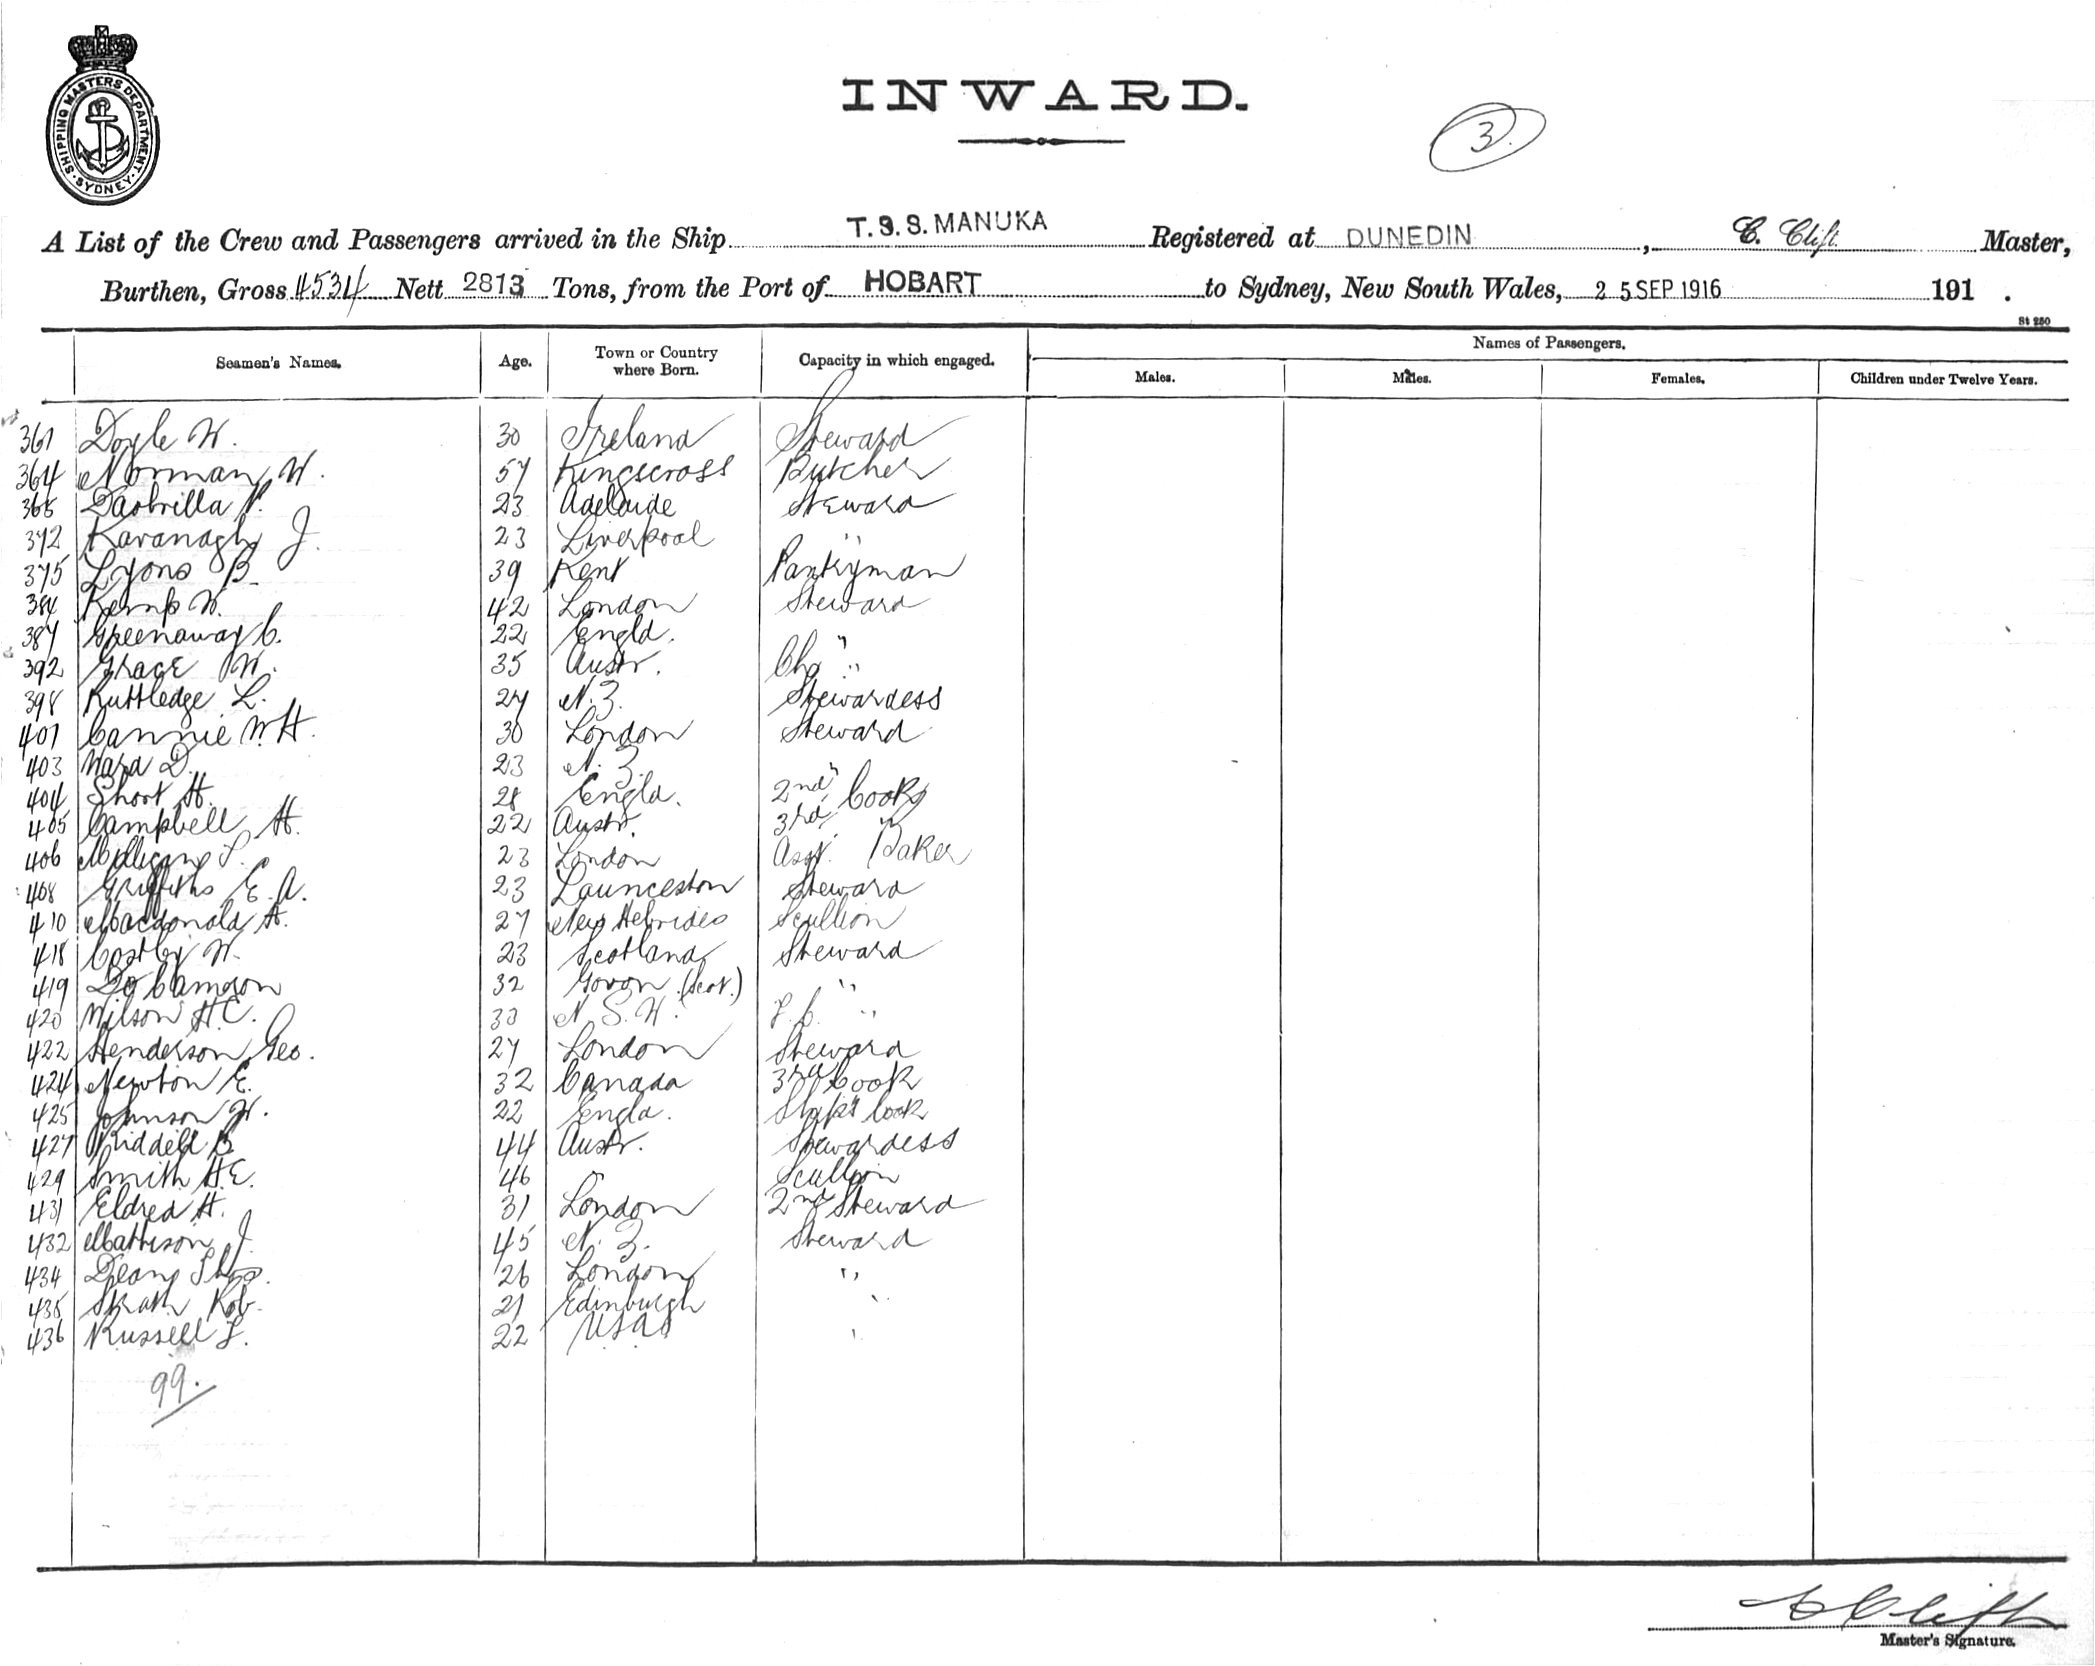 SHIPPING MASTERS DEPARTMENT. SYDNEY.
INWARD.
3.
A List of the Crew and Passengers arrived in the Ship T.S.S. MANUKA Registered at DUNEDIN, C. Clift Master,
Burthen, Gross 4534 Nett 2813 Tons, from the Port of HOBART to Sydney, New South Wales, 25 SEP 1916 191 .
St 250
Seamen's Names. Age. Town or Country where Born. Capacity in which engaged. Names of Passengers.
Males. Males. Females. Children under Twelve Years.
361 Doyle W. 30 Ireland Steward
364 Norman W. 57 Kingscross Butcher
365 23 Adelaide Steward
372 Kavanagh J. 23 Liverpool "
375 Lyons B. 39 Kent Pantryman
384 Kemp W. 42 London Steward
387 Greenaway C. 22 Engld. "
392 Grace W. 35 Austr. "
398 Ruttledge L. 27 N.Z. Stewardess
401 Cannie W.H. 30 London Steward
403 Ward D. 23 N.Z. "
404 Short H. 28 Engld. 2nd Cook
405 Campbell H. 22 Austr. 3rd "
406 Milligan 23 London Asst. Baker
408 Griffiths E.A. 23 Launceston Steward
410 Macdonald H. 27 New Hebrides Scullion
418 Costley W. 23 Scotland Steward
419 Cameron 32 Govon (Scot.) "
420 Wilson H.E. 30 N.S.W. "
422 Henderson Geo. 27 London Steward
424 Newton E. 32 Canada 3rd Cook
425 Johnson W. 22 Engld. Ship's Cook
427 Riddell B 44 Austr. Stewardess
429 Smith H.E. 46 Scullion
431 Eldred H. 31 London 2nd Steward
432 Mattison J. 45 N.Z. Steward
434 Deany Thos. 26 London "
435 Strath Rob. 21 Edinburgh "
436 Russell L. 22 USA "
99.
C Clift
Master's Signature.